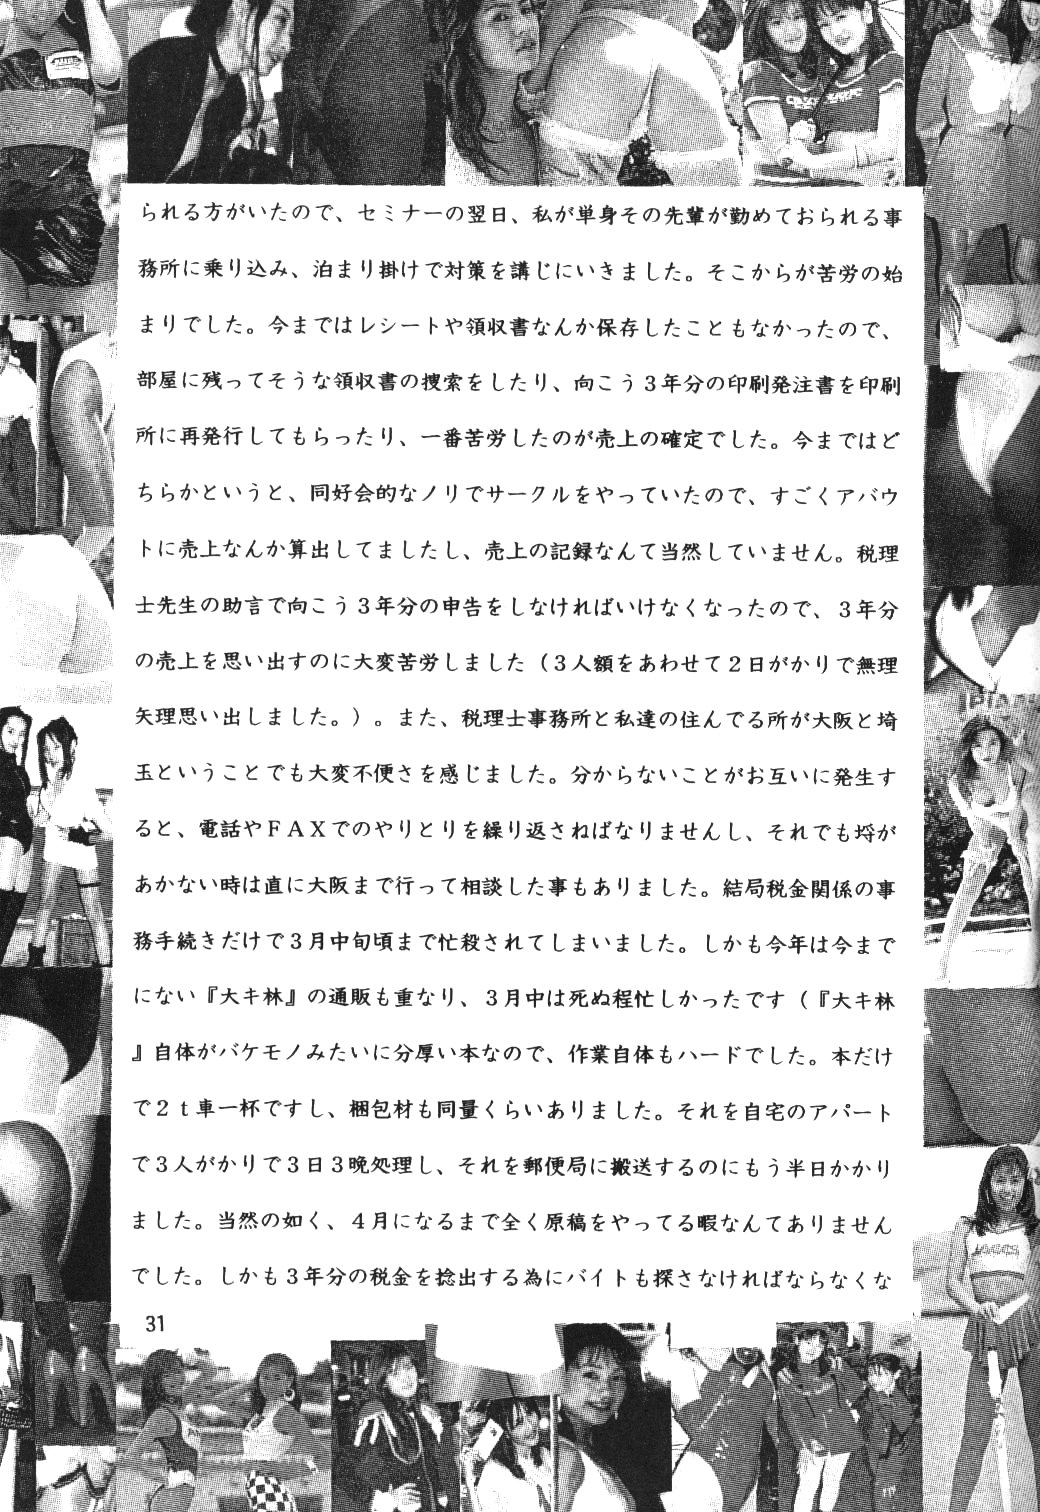 られる方がいたので、セミナーの翌日、私が単身その先輩が勤めておられる事
務所に乗り込み、泊まり掛けで対策を講じにいきました。そこからが苦労の始
まりでした。今まではレシートや領収書なんか保存したこともなかったので、
部屋に残ってそうな領収書の捜索をしたり、向こう３年分の印刷発注書を印刷
所に再発行してもらったり、一番苦労したのが売上の確定でした。今まではど
ちらかというと、同好会的なノリでサークルをやっていたので、すごくアバウ
トに売上なんか算出してましたし、売上の記録なんて当然していません。税理
士先生の助言で向こう３年分の申告をしなければいけなくなったので、３年分
の売上を思い出すのに大変苦労しました（３人額をあわせて２日がかりで無理
矢理思い出しました。）。また、税理士事務所と私達の住んでる所が大阪と埼
玉ということでも大変不便さを感じました。分からないことがお互いに発生す
ると、電話やＦＡＸでのやりとりを繰り返さねばなりませんし、それでも埒が
あかない時は直に大阪まで行って相談した事もありました。結局税金関係の事
務手続きだけで３月中旬頃まで忙殺されてしまいました。しかも今年は今まで
にない『大キ林』の通販も重なり、３月中は死ぬ程忙しかったです（『大キ林
』自体がバケモノみたいに分厚い本なので、作業自体もハードでした。本だけ
で２ｔ車一杯ですし、梱包材も同量くらいありました。それを自宅のアパート
で３人がかりで３日３晩処理し、それを郵便局に搬送するのにもう半日かかり
ました。当然の如く、４月になるまで全く原稿をやってる暇なんてありません
でした。しかも３年分の税金を捻出する為にバイトも探さなければならなくな
31
JACCS